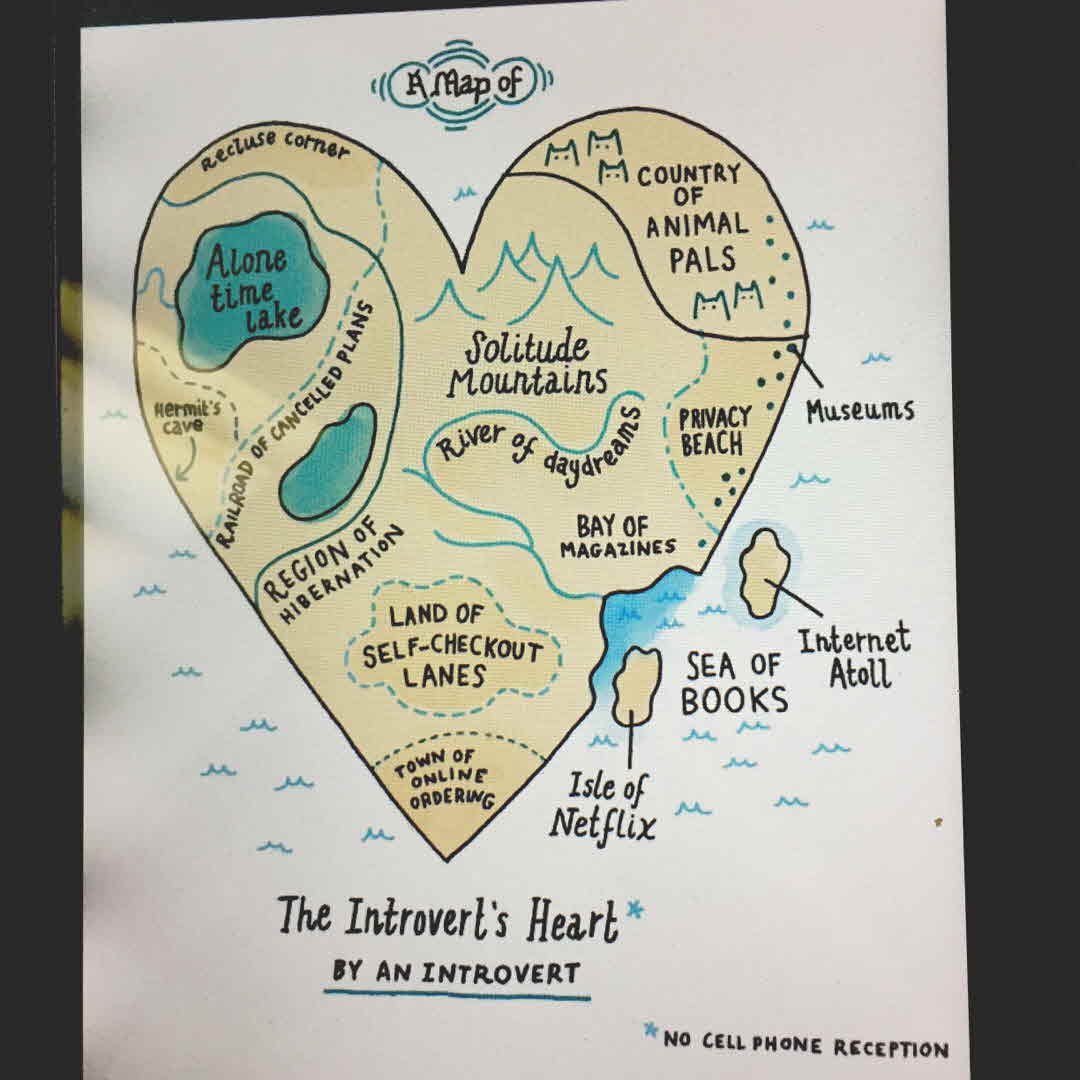 A Map of
Recluse corner
COUNTRY
OF
ANIMAL
PALS
Alone
time
lake
Solitude
Mountains
RAILROAD OF CANCELLED PLANS
Hermit's
cave
River of daydreams
PRIVACY
BEACH
Museums
BAY OF
MAGAZINES
REGION OF
HIBERNATION
LAND OF
SELF-CHECKOUT
LANES
Internet
Atoll
SEA OF
BOOKS
TOWN OF
ONLINE
ORDERING
Isle of
Netflix
The Introvert's Heart*
BY AN INTROVERT
*NO CELL PHONE RECEPTION